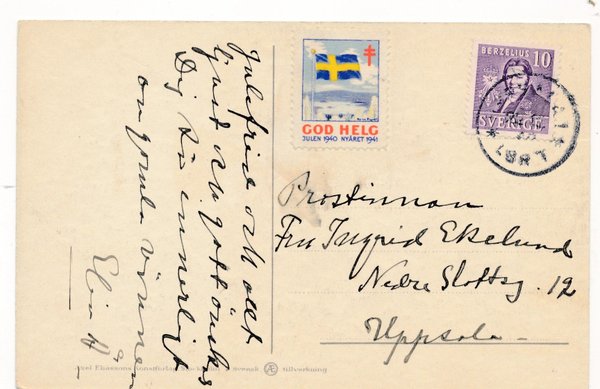 Julefrid och allt
ljust och gott önskas
Dig så innerligt
av gamla vännen
Elin H
GOD HELG
JULEN 1940 NYÅRET 1941
BERZELIUS 10
SVERIGE
Prostinnan
Fru Ingrid Ekelund
Nedre Slottsg. 12
Uppsala
Axel Eliassons Konstförlag Stockholm Svensk AE tillverkning